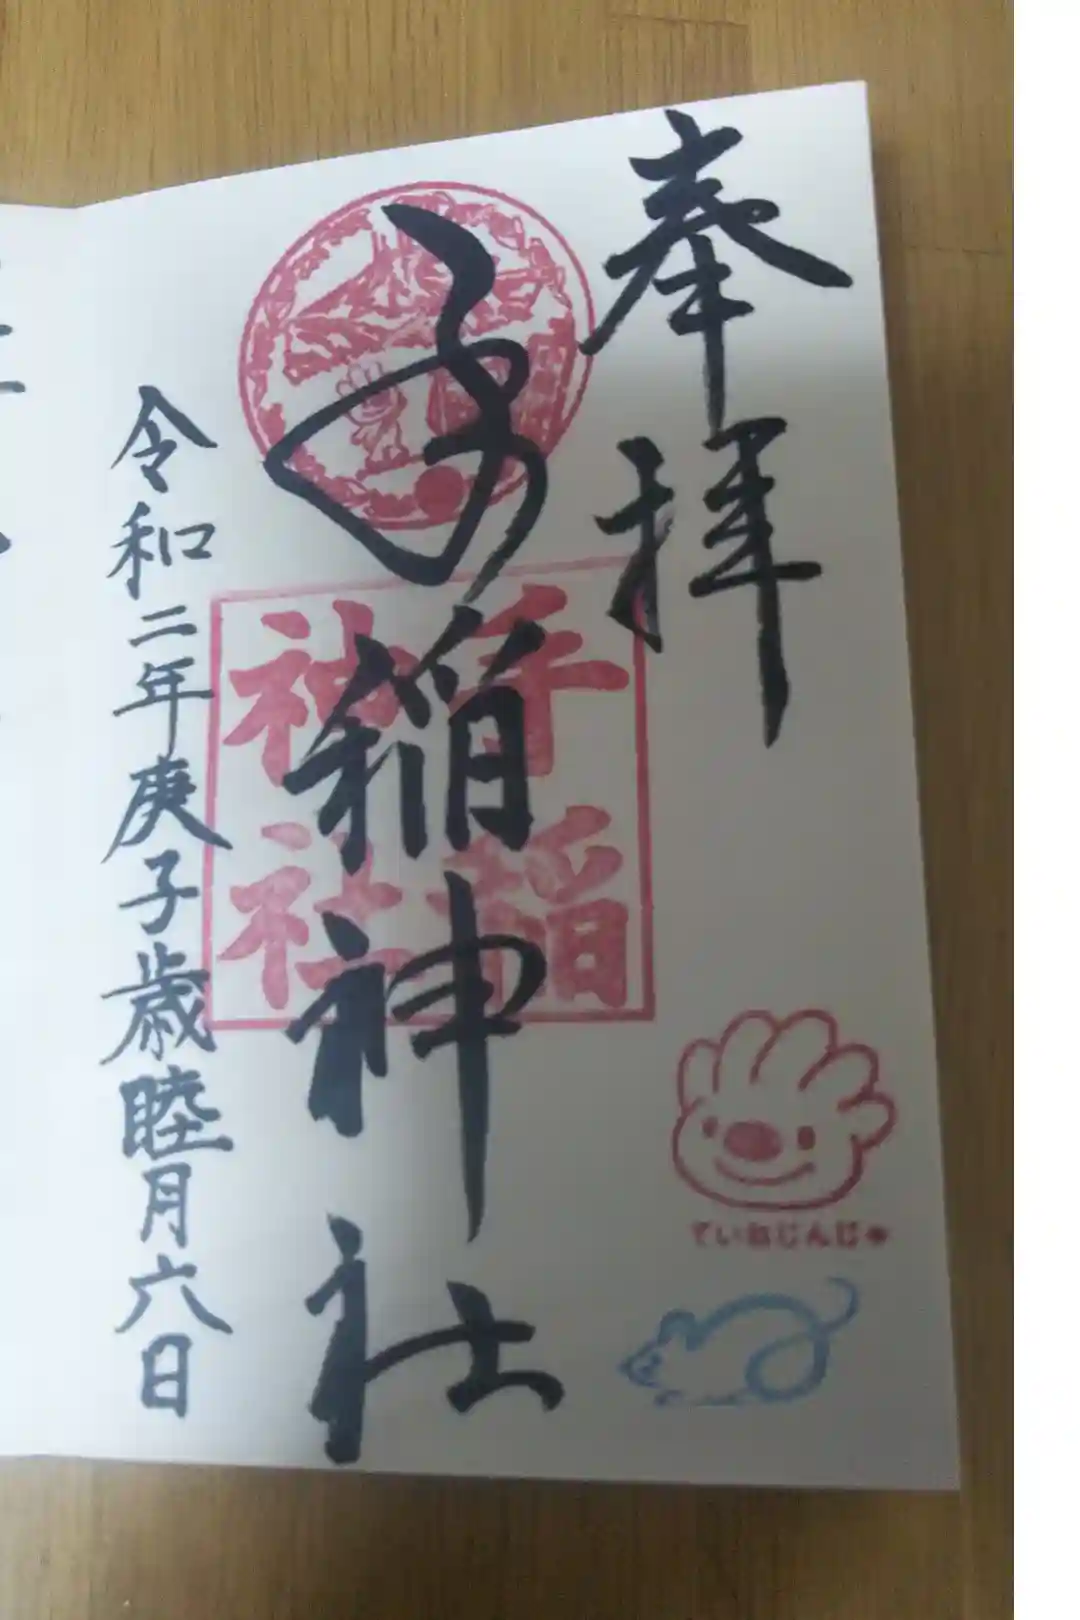 奉拝
手稲神社
手稲神社
令和二年庚子歳睦月六日
ていねじんじゃ